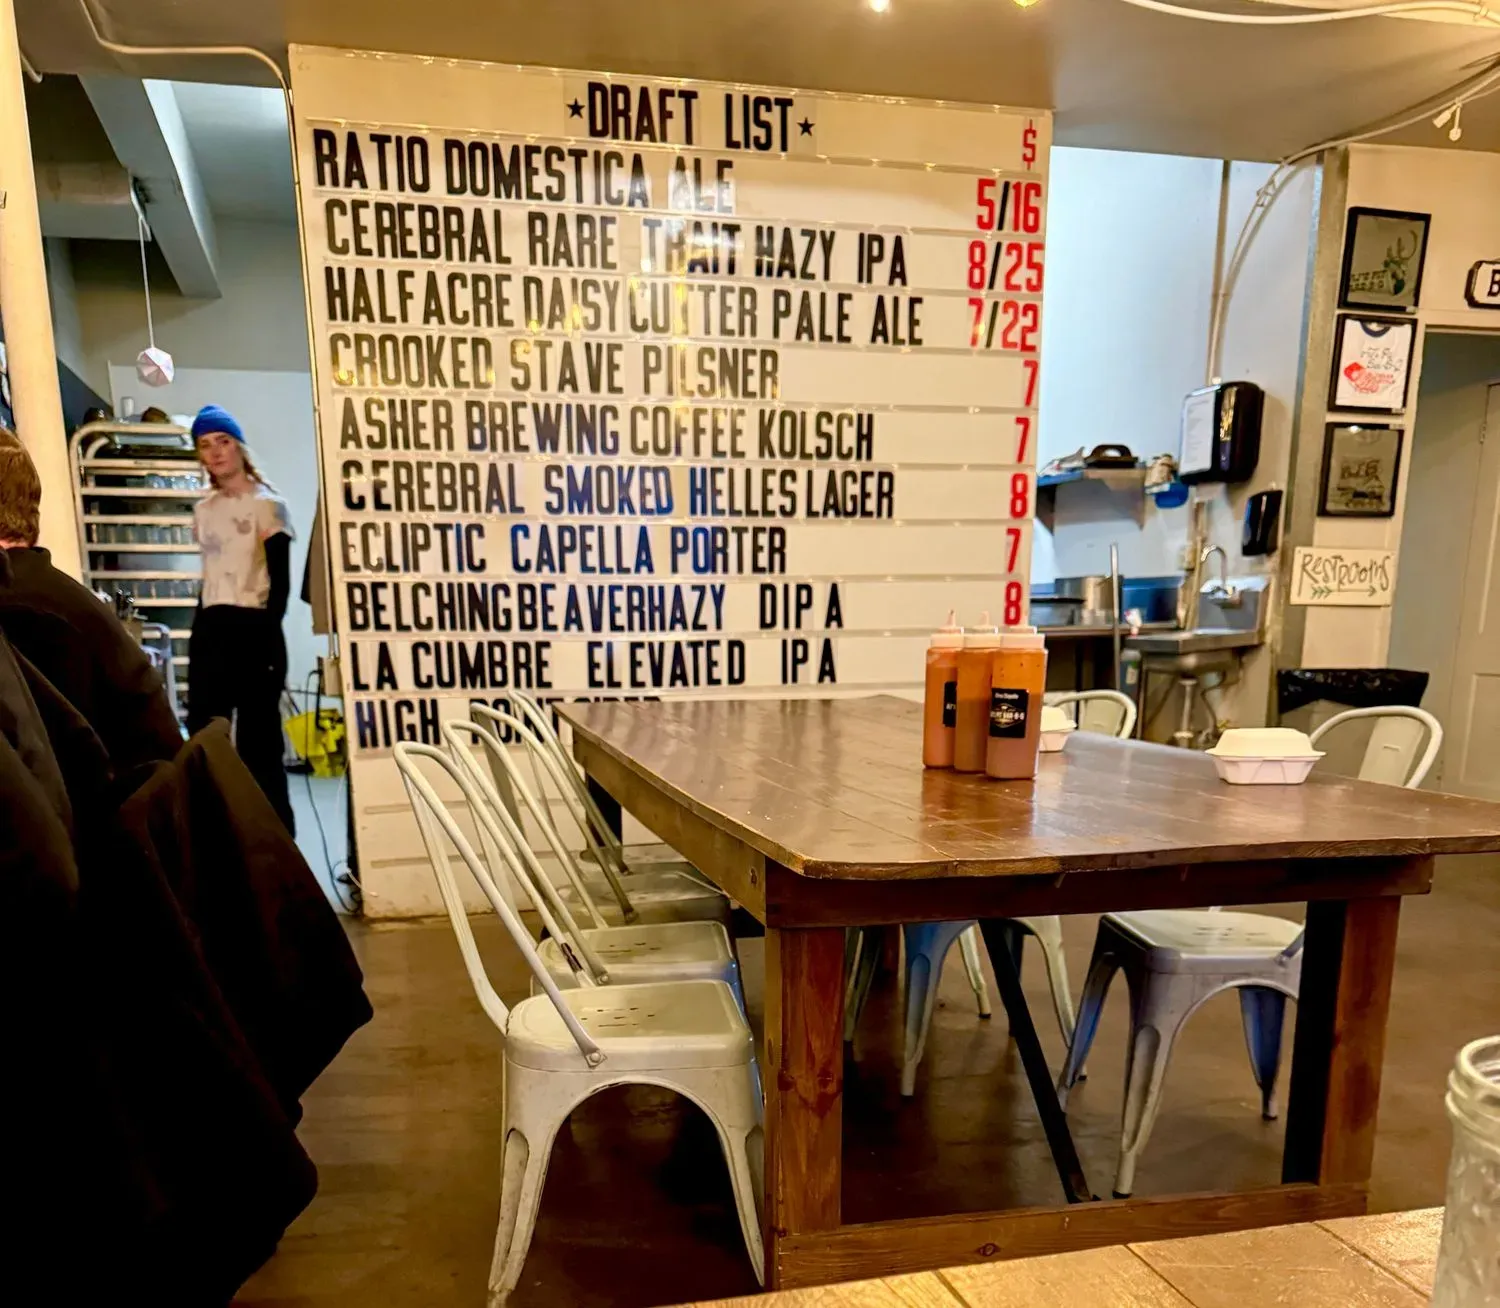 ★DRAFT LIST★
$
RATIO DOMESTICA ALE 5/16
CEREBRAL RARE TRAIT HAZY IPA 8/25
HALF ACRE DAISY CUTTER PALE ALE 7/22
CROOKED STAVE PILSNER 7
ASHER BREWING COFFEE KOLSCH 7
CEREBRAL SMOKED HELLES LAGER 8
ECLIPTIC CAPELLA PORTER 7
BELCHING BEAVER HAZY DIPA 8
LA CUMBRE ELEVATED IPA
HIGH POINT CIDER
RESTROOMS
B